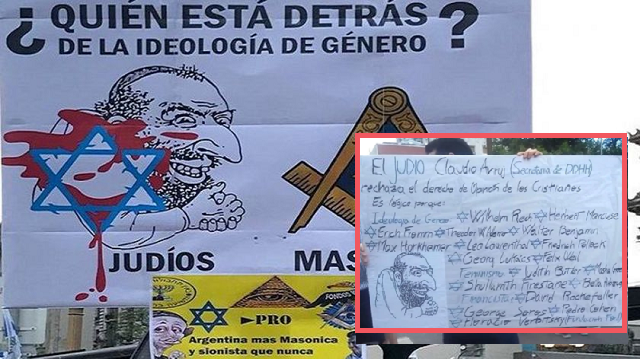 ¿QUIÉN ESTÁ DETRÁS
DE LA IDEOLOGÍA DE GÉNERO?
JUDÍOS
MAS
PRO
Argentina mas Masonica
y sionista que nunca
El JUDIO Claudio Avruj (Secretaria de DDHH)
rechaza el derecho de de los Cristianos
Es lógico porque:
Ideologia de Género Wilhelm Reich Herbert Marcuse
Erich Fromm Theodor Walter Benjamin
Max Horkheimer Leo Lowenthal Friedrich Pollock
Georg Lukács Felix Weil
Feminismo Judith Butler
Shulamith Firestone
David Rockefeller
George Soros Pedro